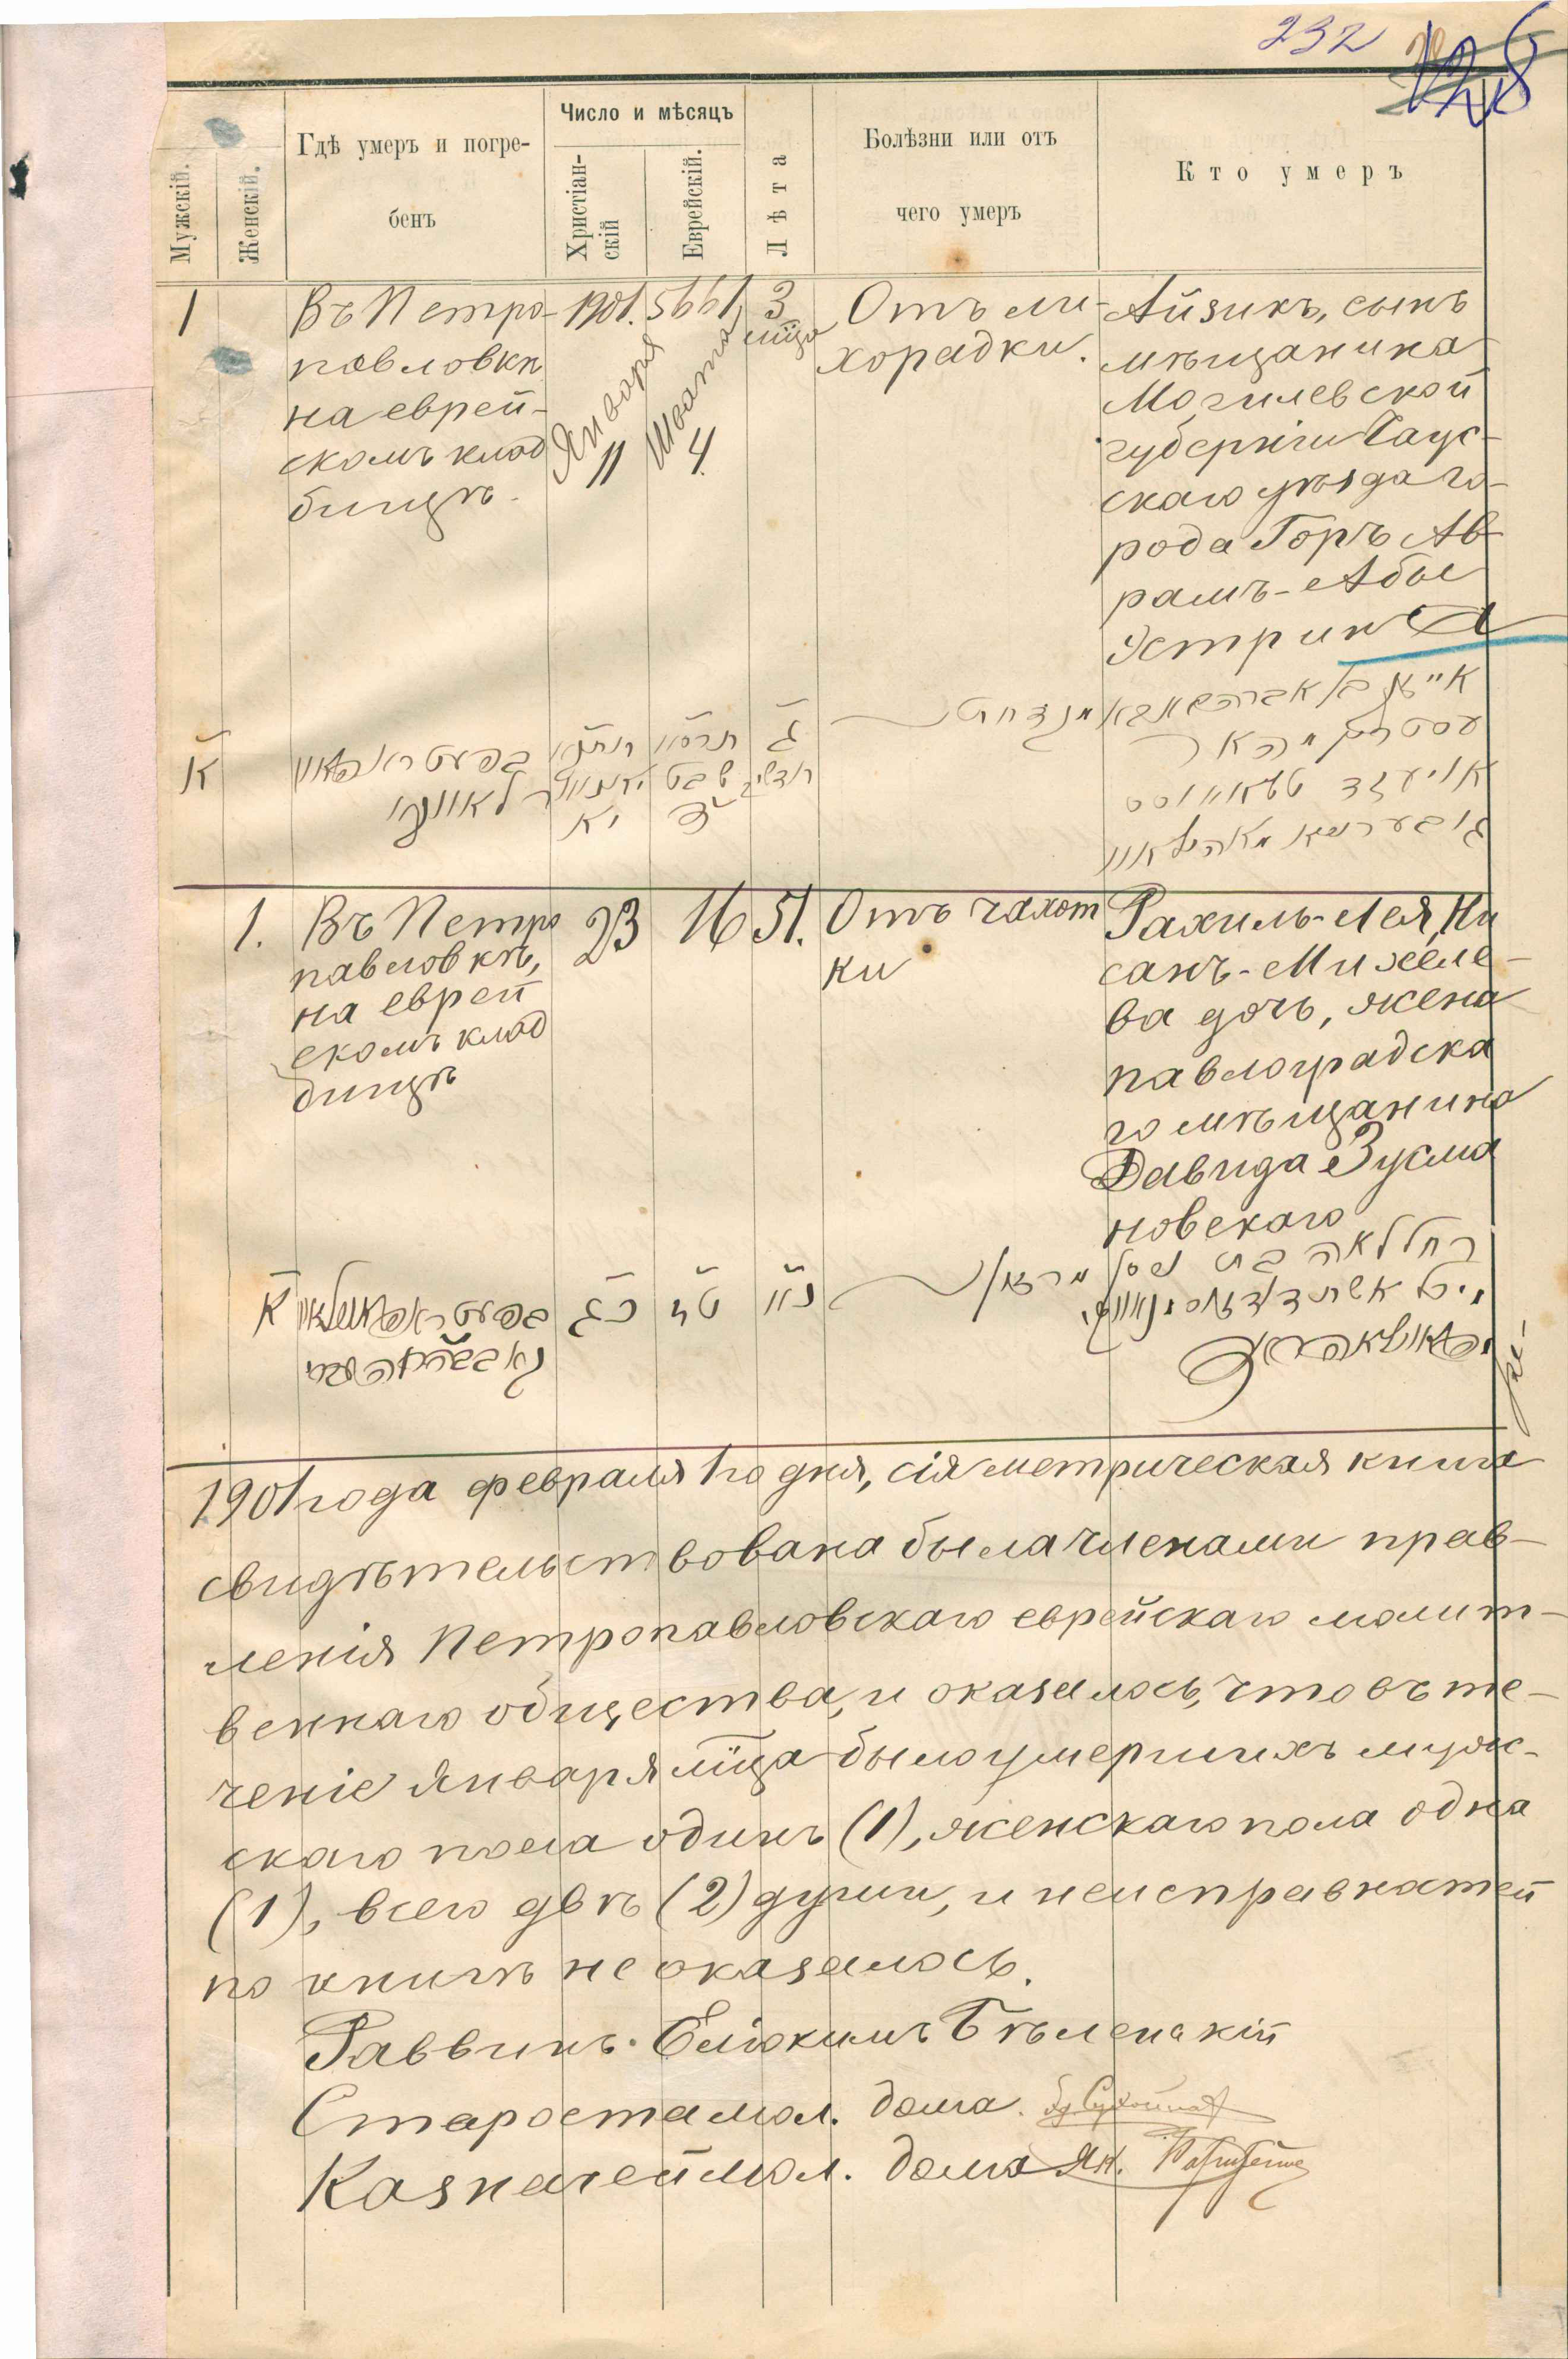 232
Мужскій.
Женскій.
Гдѣ умеръ и погре-
бенъ
Число и мѣсяцъ
Христіан-
скій
Еврейскій.
Лѣта
Болѣзни или отъ
чего умеръ
Кто умеръ
1
Въ Петро-
павловкѣ
на еврей-
скомъ клад
бищѣ.
1901.
Января
11
5661
Шевата
4
3
мѣца
Отъ ли-
хорадки.
Айзикъ, сынъ
мѣщанина
Могилевской
губерніи Чаус-
скаго уѣзда го-
рода Горъ Ав-
рамъ-Абы
Устрина
א
ג
חדשי
שבט
יא
1.
Въ Петро
павловкѣ,
на еврей
скомъ клад
бищѣ
23
16
51.
Отъ чахот
ки
Рахиль-Лея, Ни
санъ-Михеле-
ва дочь, жена
павлоградска
го мѣщанина
Давида Зусма
новскаго
א
כג
טז
נא
1901 года февраля 1го дня, сія метрическая книга
свидѣтельствована была членами прав-
ленія Петропавловскаго еврейскаго молит-
веннаго общества, и оказалось, что въ те-
ченіе Января мѣца было умершихъ муж-
скаго пола одинъ (1), женскаго пола одна
(1), всего двѣ (2) души, и неисправностей
по книгѣ не оказалось.
Раввинъ Еліокимъ Бѣленькій
Староста мол. дома
Казначей мол. дома Як.